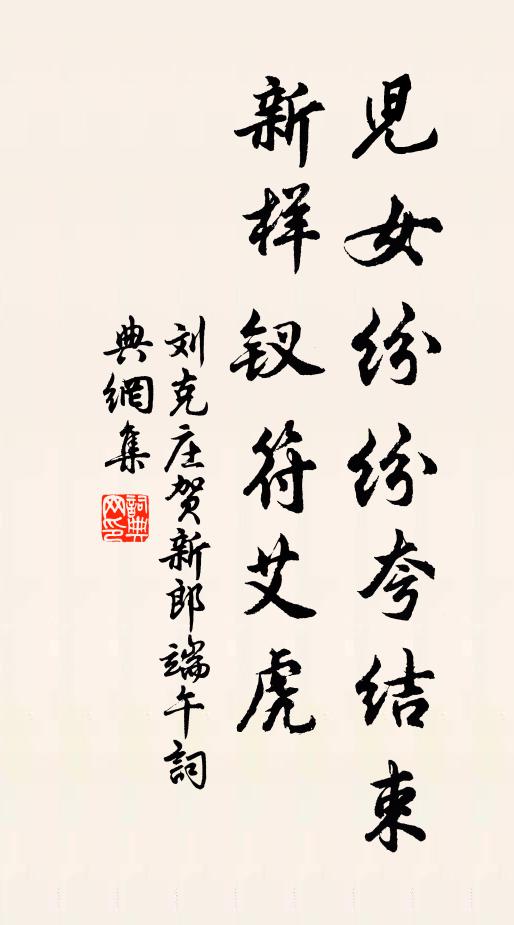 児女纷纷夸结束
新样钗符艾虎
刘克庄贺新郎端午詞
典網集
詞典网印